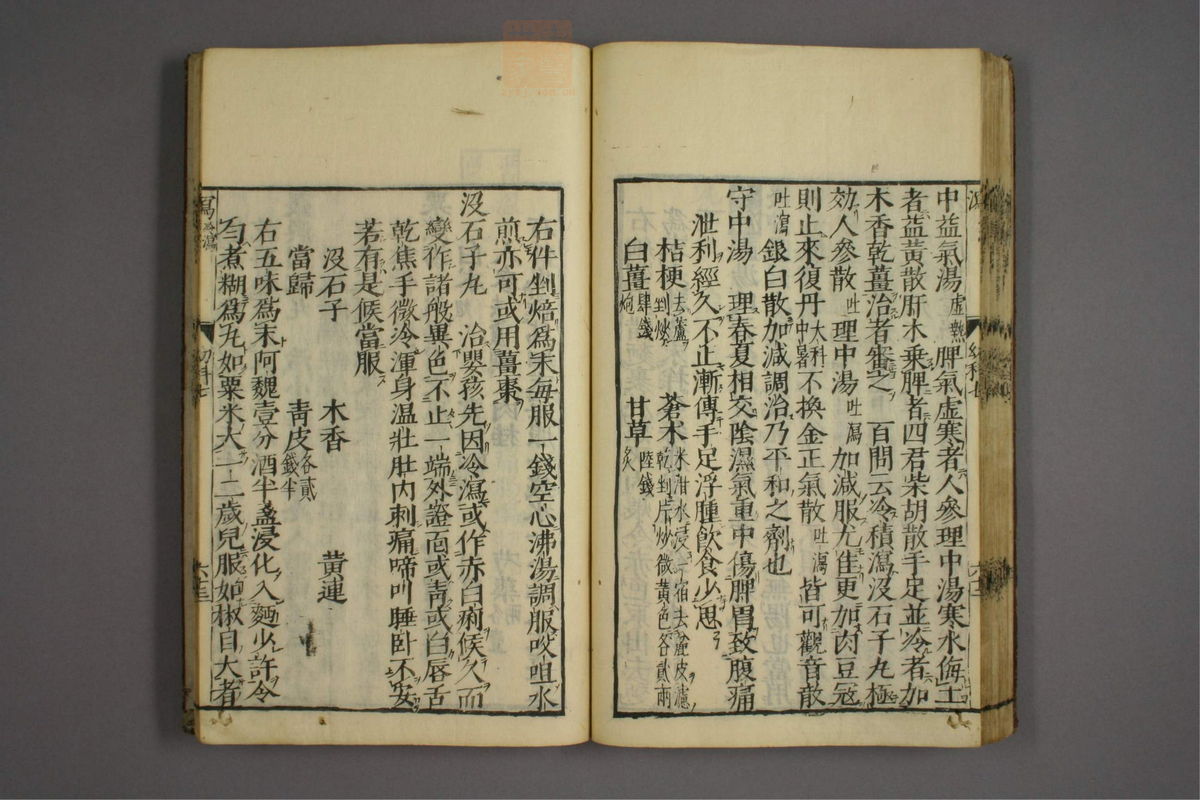 中益氣湯虛熱脾氣虛寒者人參理中湯寒水侮土
者益黃散肝木乘脾者四君柴胡散手足並冷者加
木香乾薑治者審之 百問云冷積瀉沒石子丸極
効人參散吐理中湯吐瀉加減服尤佳更加肉豆蔲
則止來復丹大科中暑不換金正氣散吐瀉皆可觀音散
吐瀉銀白散加減調治乃平和之劑也
守中湯 理春夏相交陰濕氣重中傷脾胃致腹痛
泄利經久不止漸傳手足浮腫飲食少思
桔梗去蘆剉炒 蒼朮米泔水浸一宿去麁皮濾乾剉片炒微黃色各貳兩
白薑炮肆錢 甘草炙陸錢
右件剉焙爲末每服一錢空心沸湯調服㕮咀水
煎亦可或用薑棗
沒石子丸 治嬰孩先因冷瀉或作赤白痢候久而
變作諸般異色不止一端外證面或靑或白唇舌
乾焦手微冷渾身温壯肚内刺痛啼叫睡卧不安
若有是候當服
沒石子 木香 黃連
當歸 靑皮各貳錢半
右五味爲末阿魏壹分酒半盞浸化入麵少許令
勻煮糊爲丸如粟米大一二歲兒服如椒目大者
瀉 幼科七 六十二
寫冷瀉 幼科七 六十三